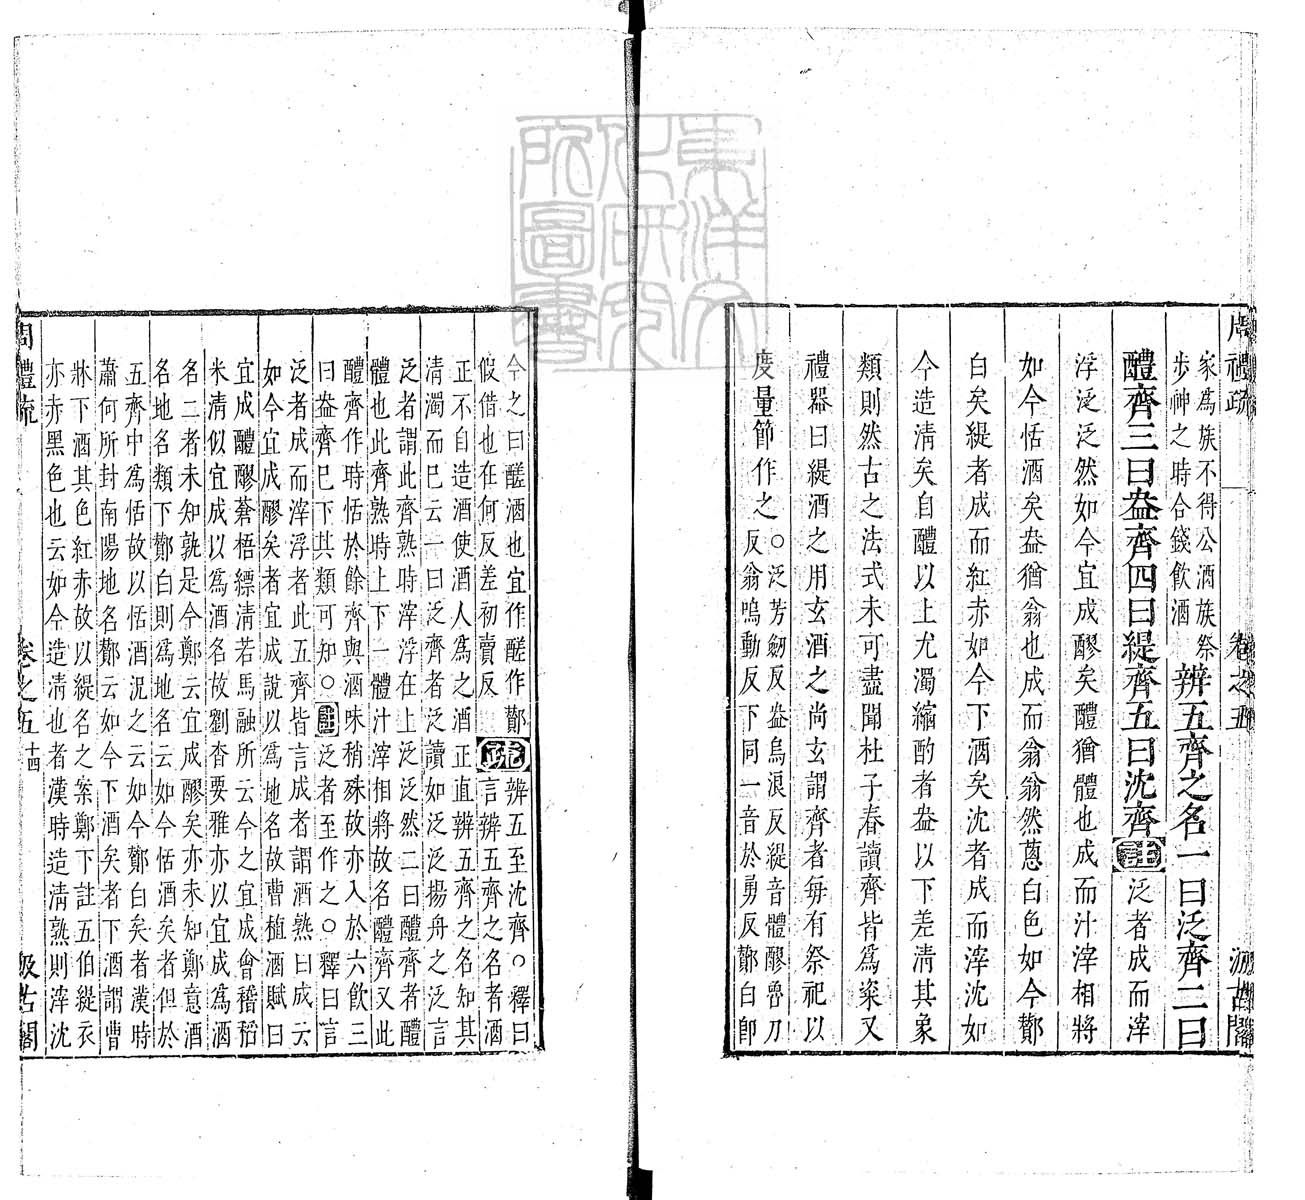 周禮疏
卷之五
汲古閣
家爲族不得公酒族祭
步神之時合錢飲酒
辨五齊之名一曰泛齊二曰
醴齊三曰盎齊四曰緹齊五曰沈齊註泛者成而滓
浮泛泛然如今宜成醪矣醴猶體也成而汁滓相將
如今恬酒矣盎猶翁也成而翁翁然蔥白色如今酇
白矣緹者成而紅赤如今下酒矣沈者成而滓沈如
今造清矣自醴以上尤濁縮酌者盎以下差清其象
類則然古之法式未可盡聞杜子春讀齊皆爲粢又
禮器曰緹酒之用玄酒之尚玄謂齊者每有祭祀以
度量節作之
○泛芳劒反盎烏浪反緹音體醪魯刀
反翁嗚動反下同一音於勇反酇白卽
今之曰醝酒也宜作醝作酇
假借也在何反差初賣反
疏
辨五至沈齊○釋曰
言辨五齊之名者酒
正不自造酒使酒人爲之酒正直辨五齊之名知其
清濁而巳云一曰泛齊者泛讀如泛泛揚舟之泛言
泛者謂此齊熟時滓浮在上泛泛然二曰醴齊者醴
體也此齊熟時上下一體汁滓相將故名醴齊又此
醴齊作時恬於餘齊與酒味稍殊故亦入於六飲三
曰盎齊巳下其類可知○註泛者至作之○釋曰言
泛者成而滓浮者此五齊皆言成者謂酒熟曰成云
如今宜成醪矣者宜成說以爲地名故曹植酒賦曰
宜成醴醪蒼梧縹清若馬融所云今之宜成會稽稻
米清似宜成以爲酒名故劉杳要雅亦以宜成爲酒
名二者未知孰是今鄭云宜成醪矣亦未知鄭意酒
名地名類下酇白則爲地名云如今恬酒矣者但於
五齊中爲恬故以恬酒況之云如今酇白矣者漢時
蕭何所封南陽地名酇云如今下酒矣者下酒謂曹
牀下酒其色紅赤故以緹名之案鄭下註五伯緹衣
亦赤黑色也云如今造清也者漢時造清熟則滓沈
周禮疏
卷之五
十四
汲古閣
東洋文
化研究
所圖書